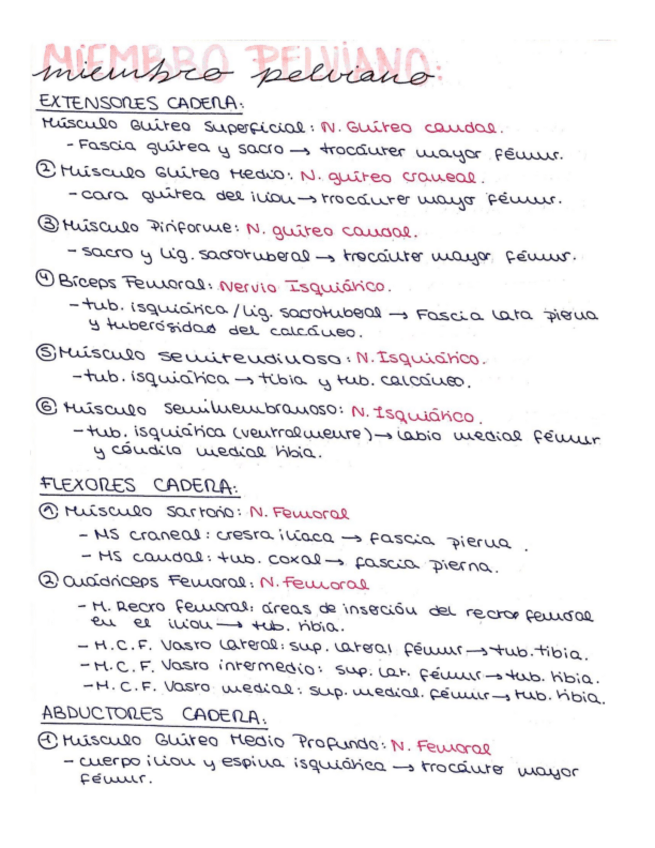 MIEMBRO PELVIANO:
miembro pelviano
EXTENSORES CADERA:
Músculo Glúteo Superficial: N. Glúteo caudal.
- Fascia glútea y sacro → trocánter mayor fémur.
② Músculo Glúteo Medio: N. glúteo craneal.
- cara glútea del ilion → trocánter mayo fémur.
③ Músculo Piriforme: N. glúteo caudal.
- sacro y lig. sacrotuberal → trocánter mayor fémur.
④ Bíceps Femoral: Nervio Isquiático.
- tub. isquiática / lig. sacrotuberal → Fascia lata pierna
y tuberosidad del calcáneo.
⑤ Músculo semitendinoso: N. Isquiático.
- tub. isquiática → tibia y tub. calcáneo.
⑥ Músculo semimembranoso: N. Isquiático.
- tub. isquiática (ventralmente) → labio medial fémur
y cóndilo medial tibia.
FLEXORES CADERA:
① Músculo Sartorio: N. Femoral
- MS craneal: cresta ilíaca → fascia pierna.
- MS caudal: tub. coxal → fascia pierna.
② Cuádriceps Femoral: N. Femoral
- M. Recto femoral: áreas de inserción del recto femoral
en el ilion → tub. tibia.
- M.C.F. Vasto Lateral: sup. lateral fémur → tub. tibia.
- M.C.F. Vasto intermedio: sup. lat. fémur → tub. tibia.
- M.C.F. Vasto medial: sup. medial. fémur → tub. tibia.
ABDUCTORES CADERA:
① Músculo Glúteo Medio Profundo: N. Femoral
- cuerpo ilion y espina isquiática → trocánter mayor
fémur.